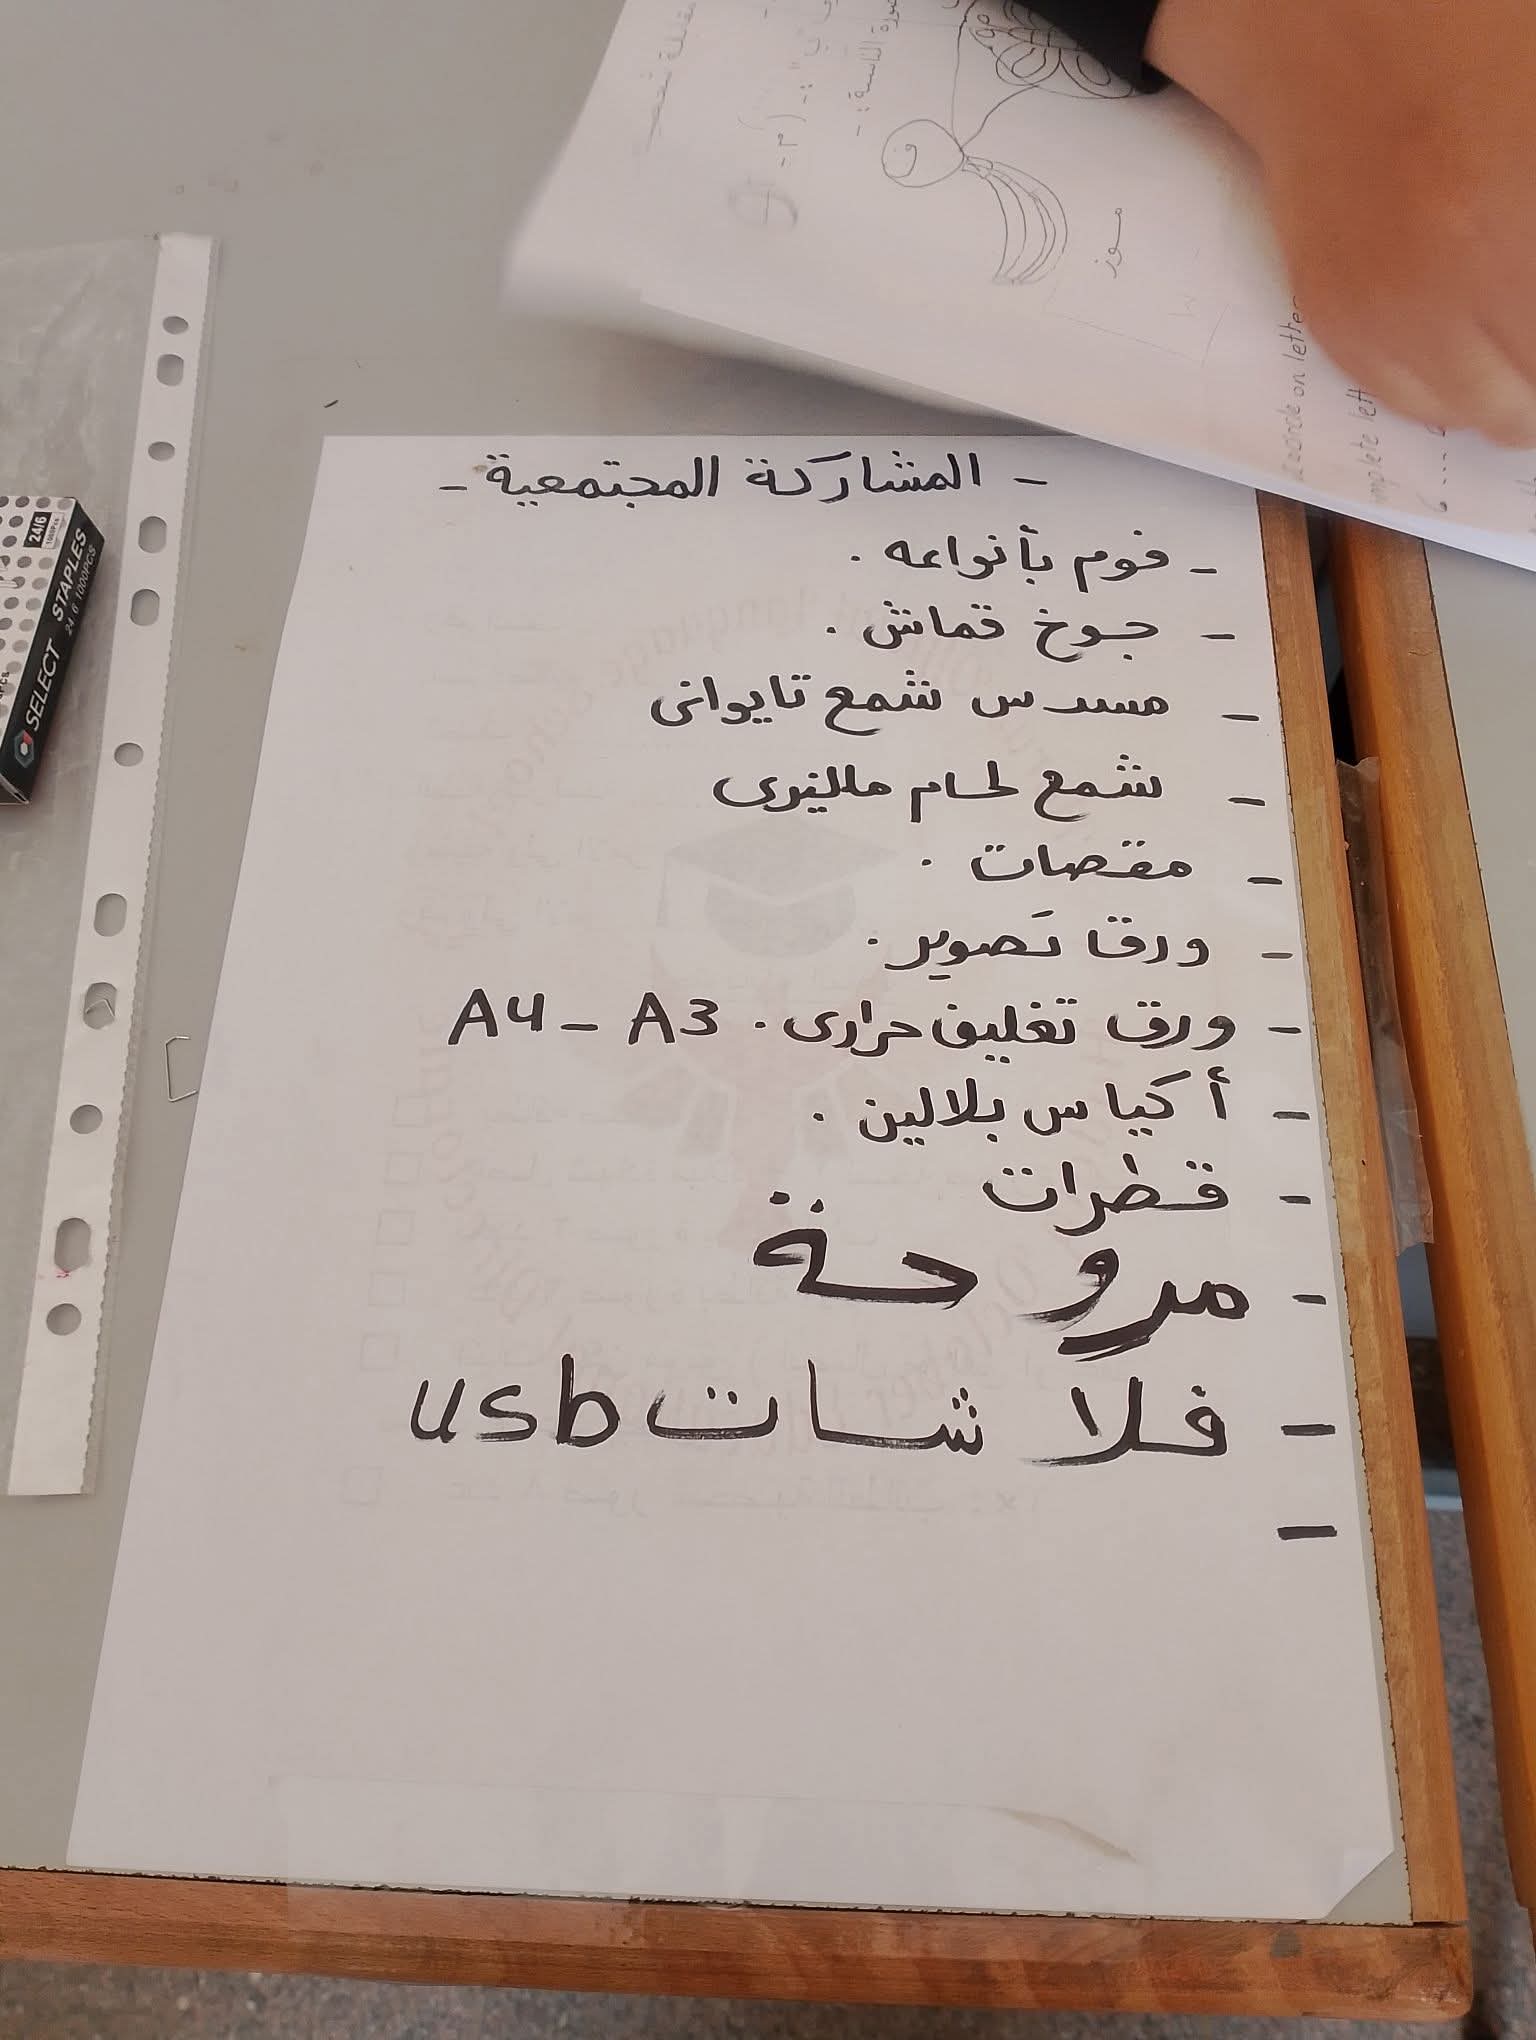 - المشاركة المجتمعية -
- فوم بأنواعه .
- جوخ قماش .
- مسدس شمع تايوانى
- شمع لحام ماليزى
- مقصات .
- ورق تصوير .
- ورق تغليف حرارى . A4 - A3
- أكياس بلالين .
- قطرات
- مروحة
- فلاشات usb
-
SELECT STAPLES
24/6 1000PCS
24/6
موز
ف
on letter